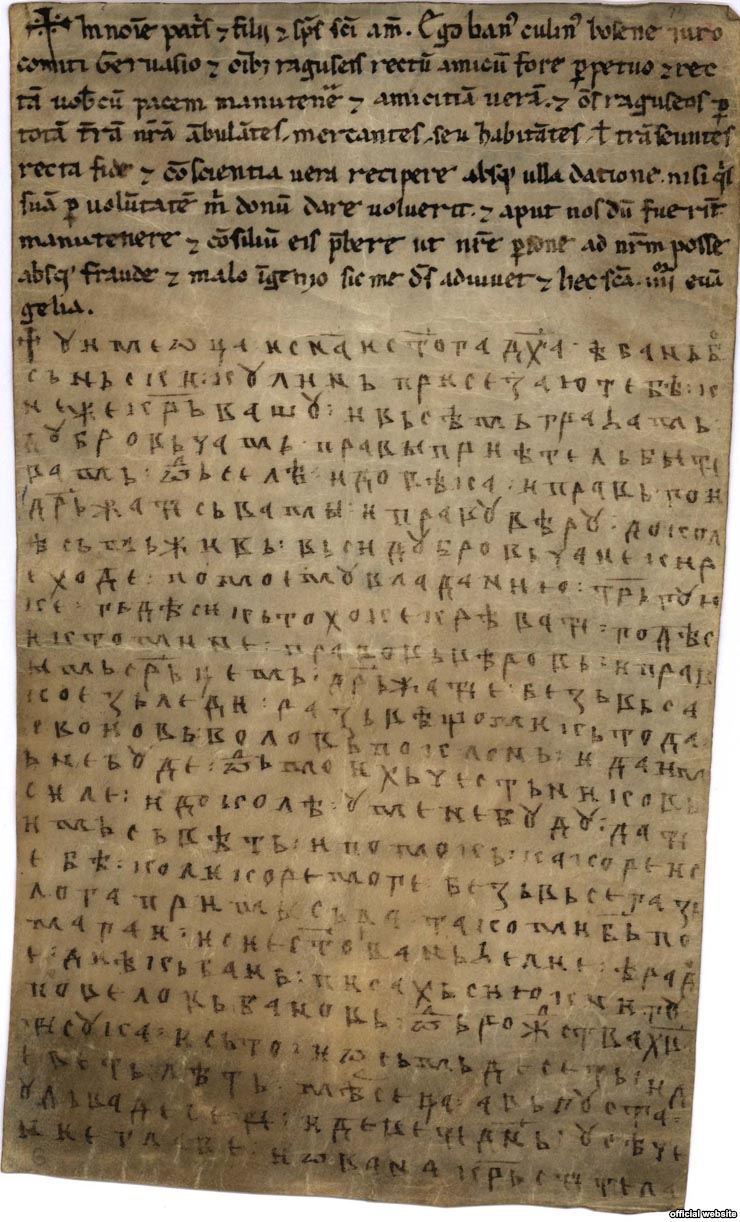 † In noīe pat̄s ⁊ filii ⁊ sp̄s sc̄i am̄. Ego banꝰ culinꝰ bosene iuro
comiti Geruasio ⁊ oīb; raguseis rectū amicū fore ꝑpetuo ⁊ rec
tā uob̄cū pacem manuten̄e ⁊ amicitiā uerā. ⁊ oēs raguseos ꝑ
totā t̄rā nr̄ā ābulātes, mercantes, seu habitātes, ł trāseuntes
recta fide ⁊ cōscientia uera recipere absqꝫ ulla datione. nisi q̄s
suā ꝑ uolūtatē m̄ donū dare uoluerit. ⁊ aput nos dū fuerīt
manutenere ⁊ cōsiliū eis p̄bere ut nr̄e ꝑsone ad nr̄m posse
absqꝫ fraude ⁊ malo īgenio sic me d̄s adiuuet ⁊ hec sc̄a. iiii euā
gelia.
† У име ѡца и сна и стога дха · ѣ бань бо
сьньски: кулинь присезаю тебѣ: к
неже крьвашу: и вьсѣмь граћамь
дубровьчамь: правы приѣтель быти
вамь: ѿь селѣ: и довѣка: и правь гои
дрьжати сь вами: и праву вѣру: докол
ѣ сьмь живь: вьси дубровьчане кирѣ
ходе: по моему владанию: трьгую
ке: гьдѣ си кьто хоке крѣвати: годѣ с
и кто мине: правовь вѣровь: и прав
ымь срьцемь: дрьжати е: безь вьса
кое зьледи: разьвѣ що ми кьто да
своиовь воловь поклонь: и да им
ь не буде: ѿь моихь честьниковь
силе: и доколѣ: у мене буду: дати
имь сьвѣть: и помокь: како и с
ебѣ: коликоре море: безь вьсега зь
лога примысьла: тако ми бь по
магаи: и сие сто еваньћелие: ѣ рад
ое: диѣкь бань: писахь сию книгу
повеловь бановь: ѿь рожства хва
тисука: и сьто: и ѡсьмьдесеть: и д
еветь лѣть: мѣсеца: авьгуста:
у дьвадесети: и девети дьнь: усѣче
ние главе: иѡвана крьстителѣ
official website